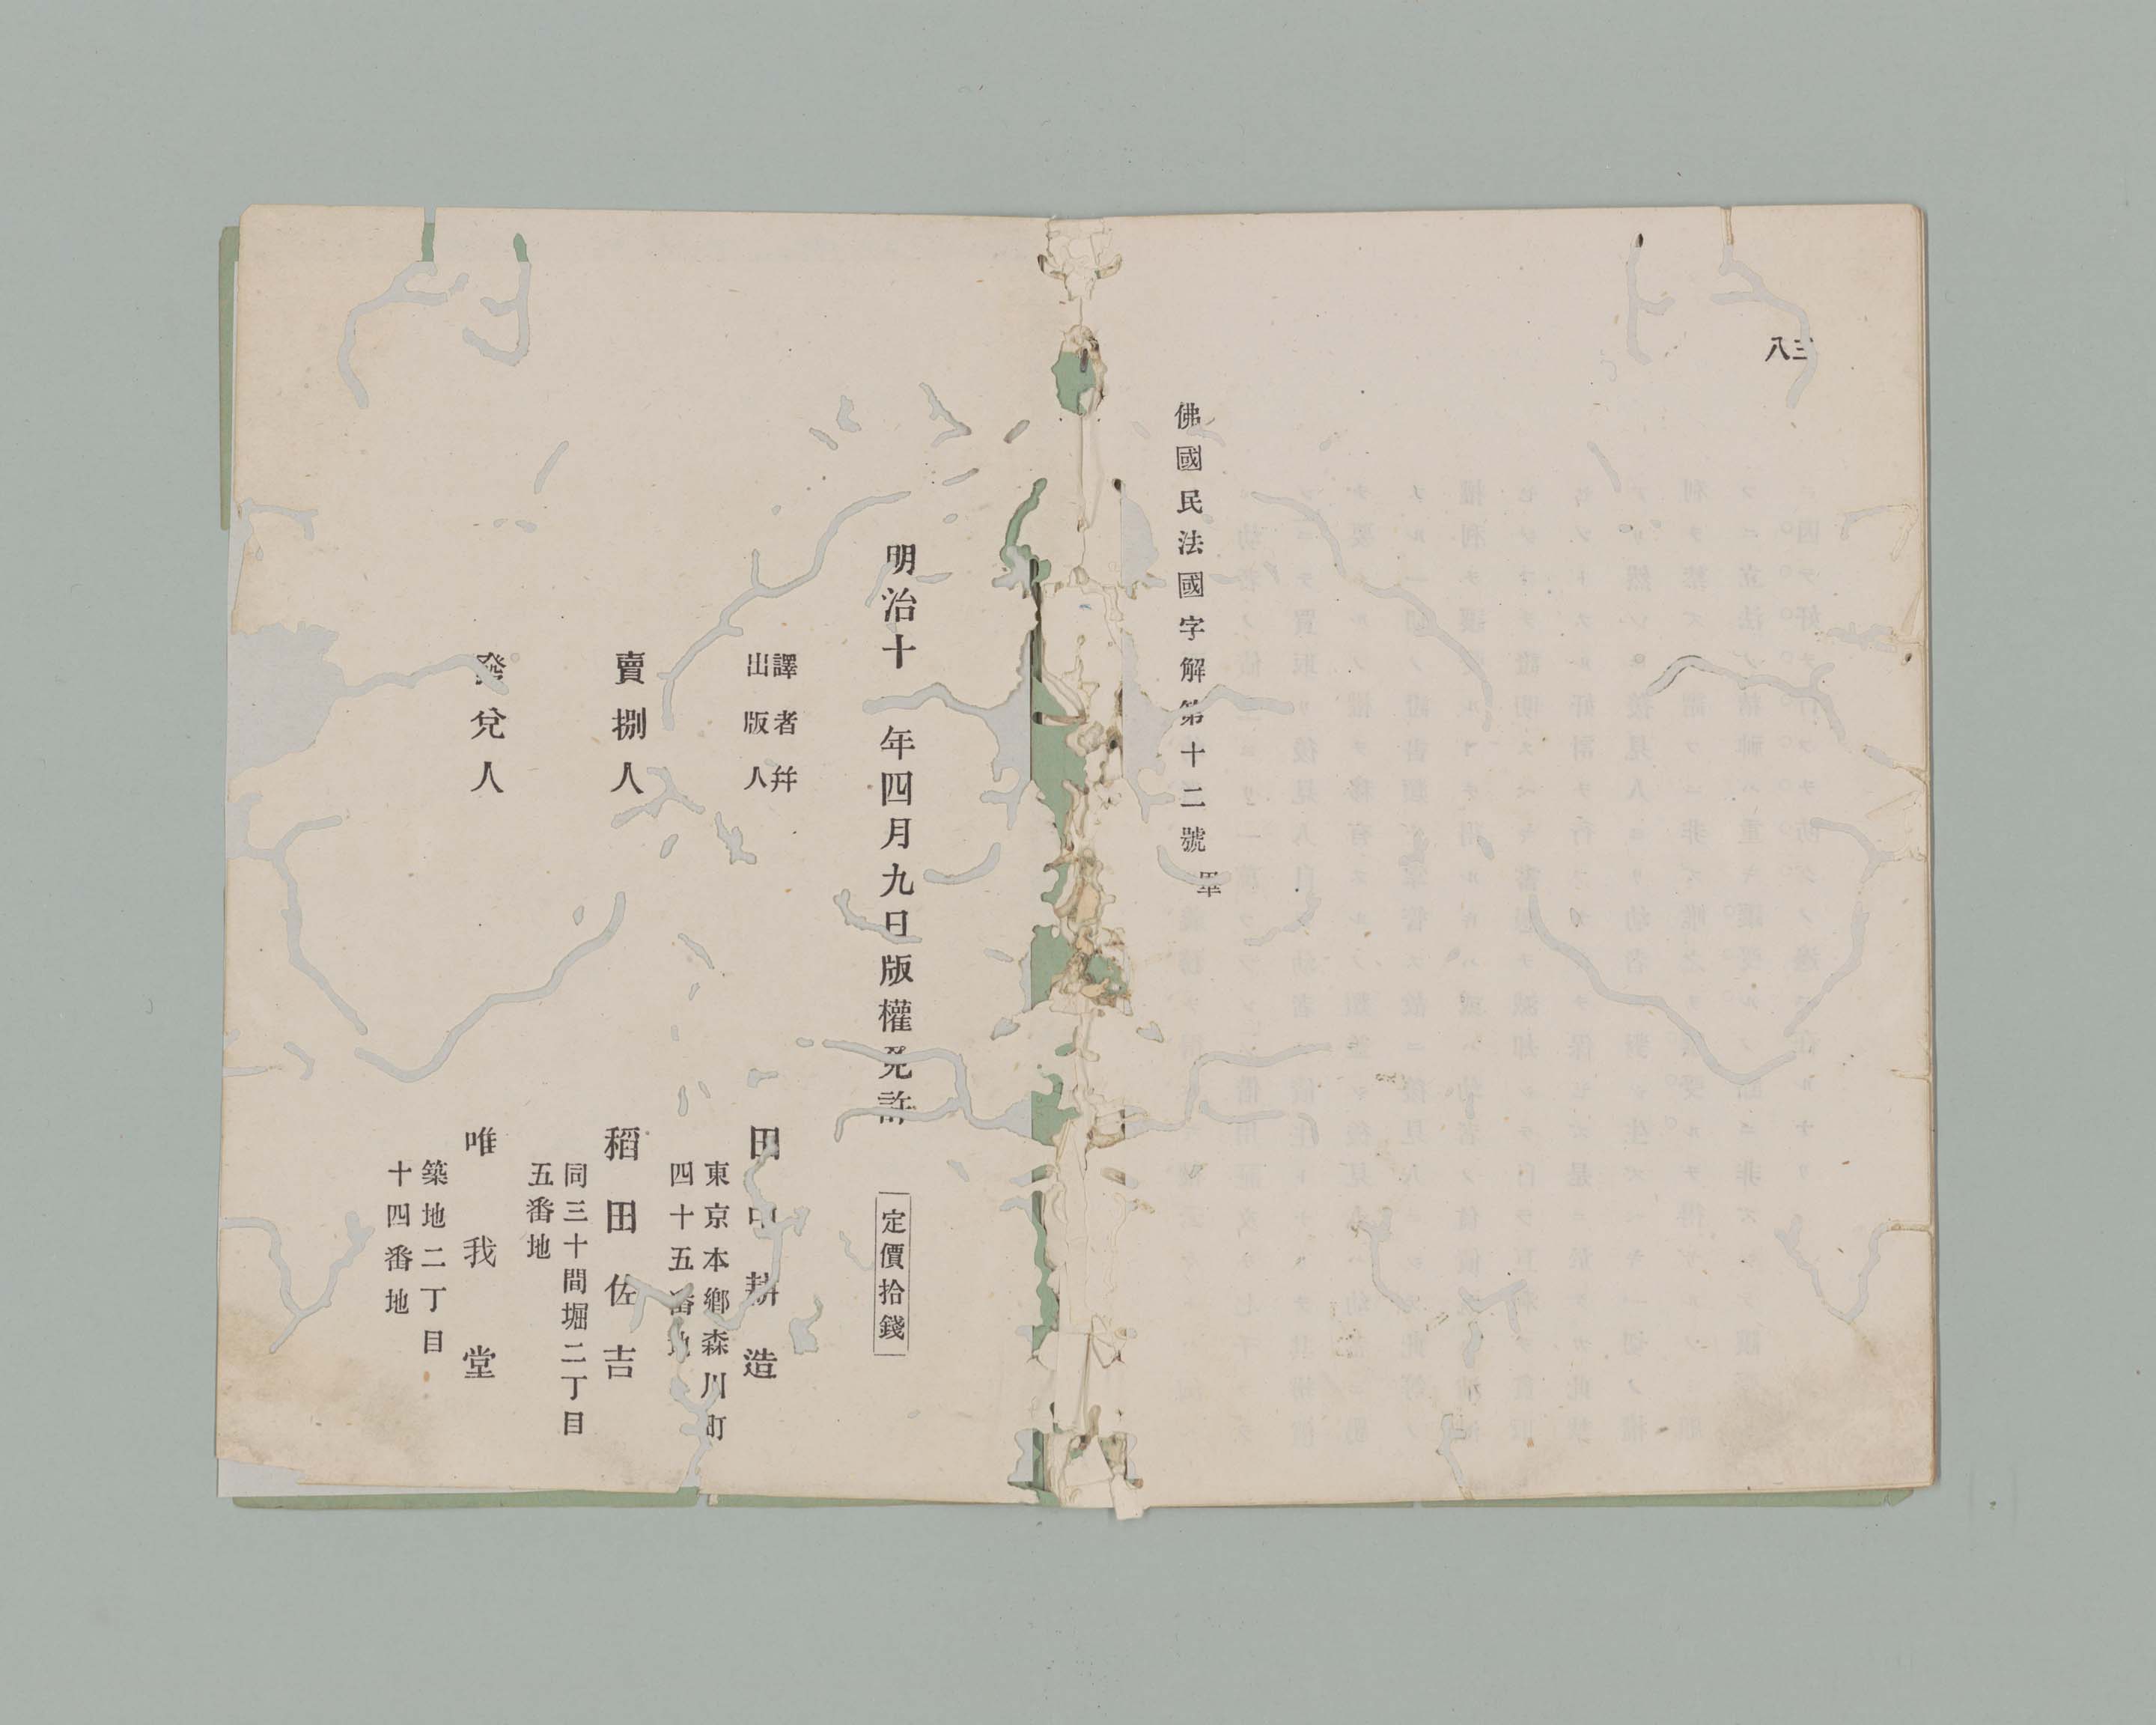 三八
佛國民法國字解第十二號畢
明治十年四月九日版權免許
定價拾錢
譯者幷
出版人
田中耕造
東京本鄉森川町
四十五番地
賣捌人
稻田佐吉
同三十間堀二丁目
五番地
發兌人
唯我堂
築地二丁目
十四番地